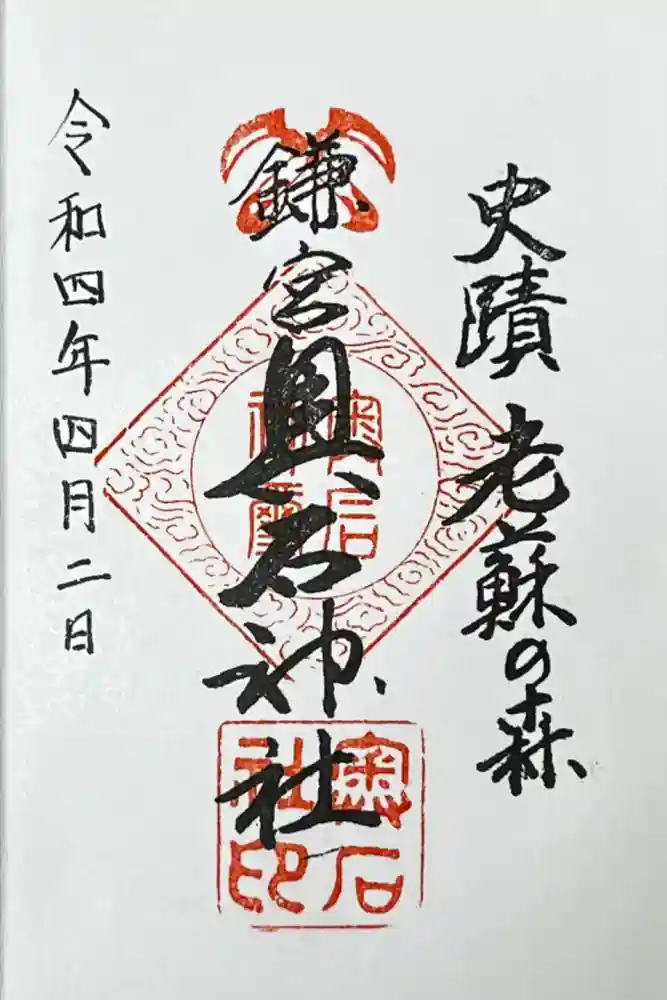 史蹟 老蘇の森
鎌宮奥石神社
奥石
神璽
奥石
社印
令和四年四月二日